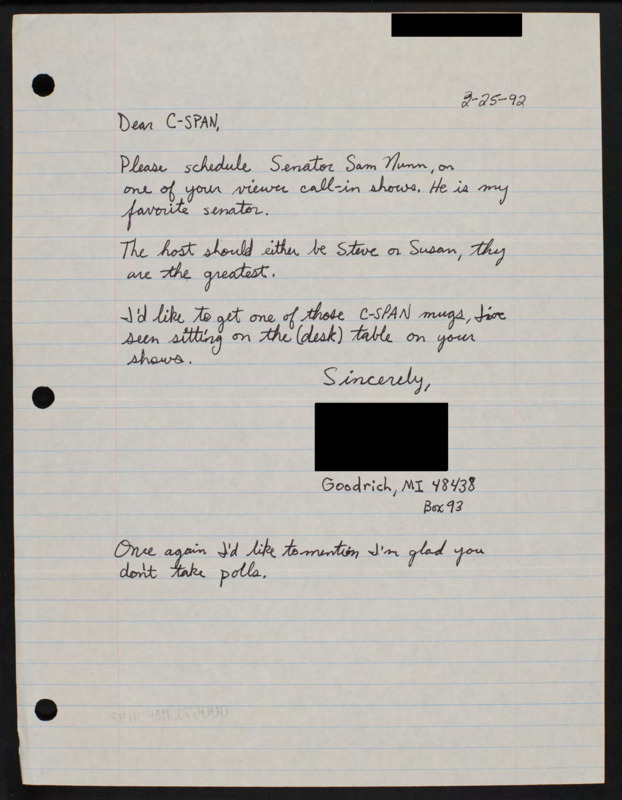 3-25-92
Dear C-SPAN,
Please schedule Senator Sam Nunn, on
one of your viewer call-in shows. He is my
favorite senator.
The host should either be Steve or Susan, thy
are the greatest.
I'd like to get one of those C-SPAN mugs, I've
seen sitting on the (desk) table on your
shows.
Sincerely,
Goodrich, MI 48438
Box 93
Once again I'd like to mention I'm glad you
don't take polls.